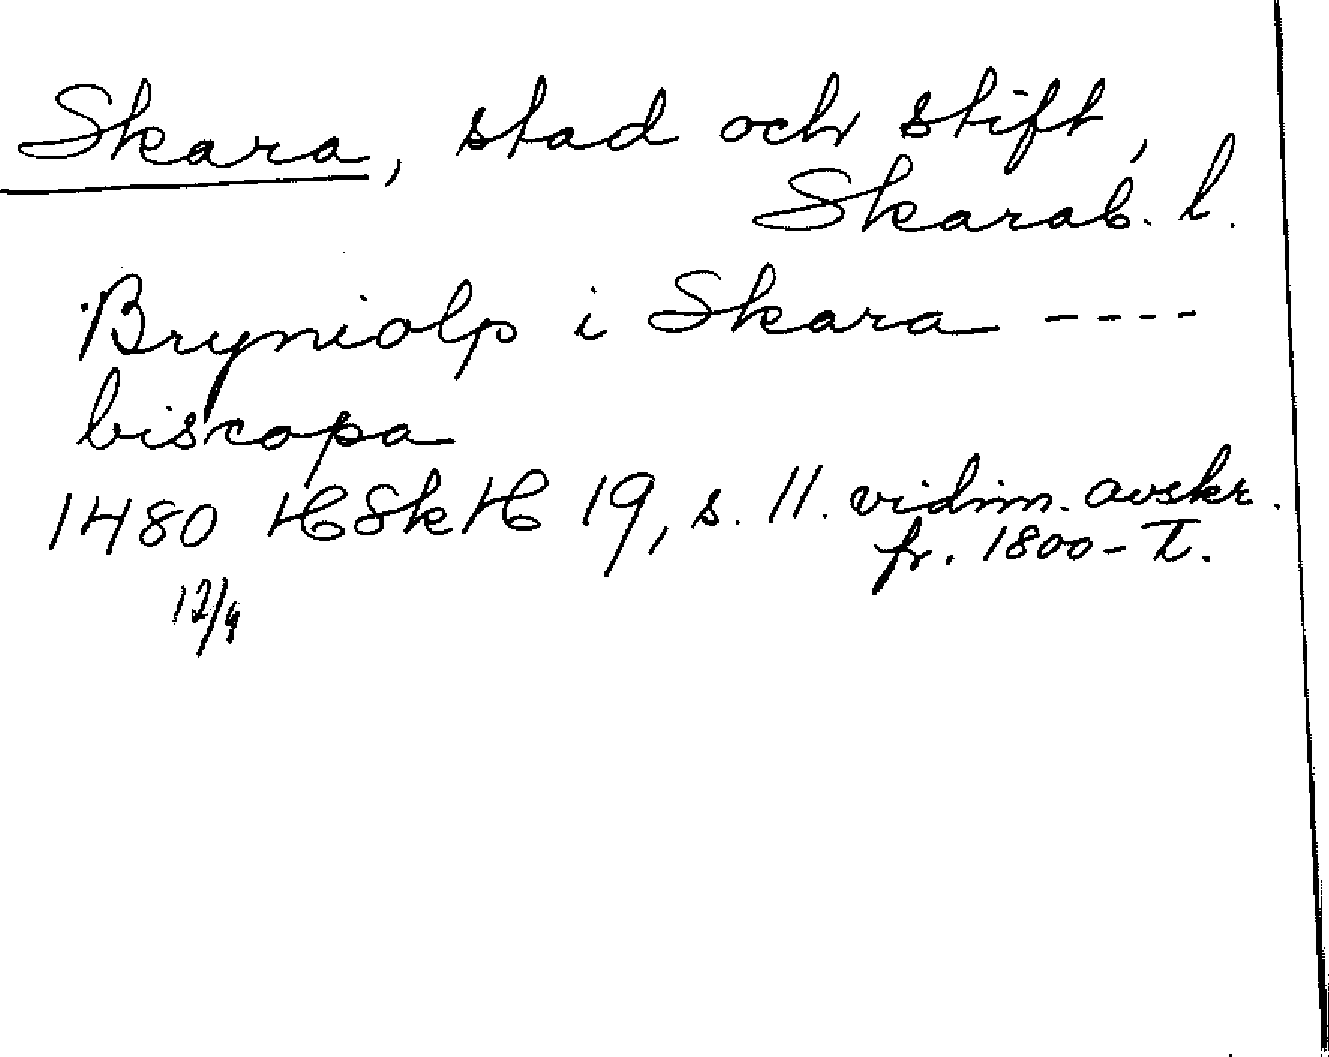 Skara, stad och stift,
Skarab. l.
Bryniolp i Skara ----
biscopa
1480 HSkH 19, s. 11. vidim. avskr.
fr. 1800-T.
12/9